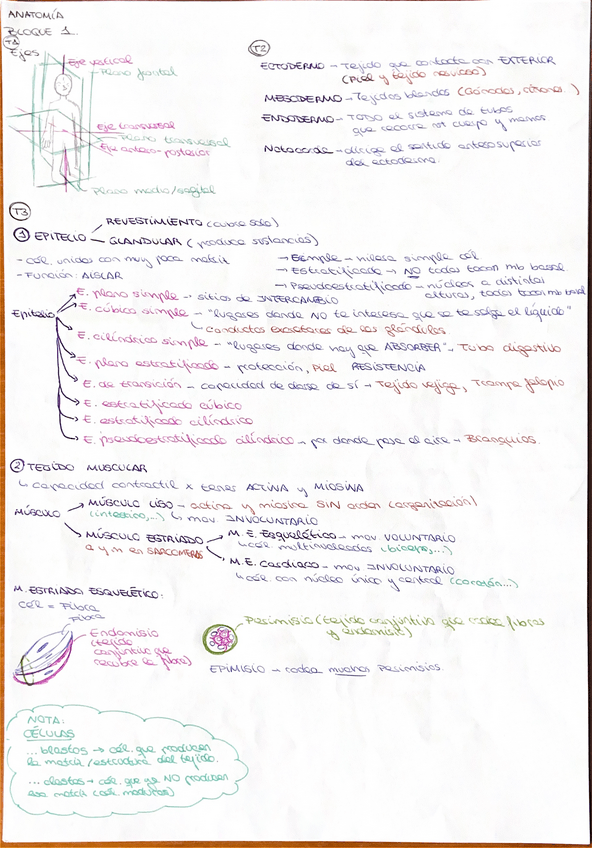 ANATOMÍA
BLOQUE 1.
T1
Ejes
Eje vertical
Plano frontal
Eje transversal
Plano transversal
Eje antero-posterior
Plano medio/sagital
T2
ECTODERMO - Tejido que contacta con EXTERIOR
(Piel y tejido nervioso)
MESODERMO - Tejidos blandos (Gónadas, riñones..)
ENDODERMO - TODO el sistema de tubos
que recorre mi cuerpo y manos
Notocorda - dirige el sentido anterosuperior
del ectodermo.
T3
1 EPITELIO
REVESTIMIENTO (cubre solo)
GLANDULAR (produce sustancias)
- cél. unidas con muy poca matriz
- Función: AISLAR
→ Simple - hilera simple cél
→ Estratificado → NO todas tocan mb basal
→ Pseudoestratificado - núcleos a distintas
alturas, todas tocan mb basal
Epitelio
E. plano simple - sitios de INTERCAMBIO
E. cúbico simple - "lugares donde NO te interesa que se te salga el líquido"
Conductos excretores de las glándulas
E. cilíndrico simple - "lugares donde hay que ABSORBER" - Tubo digestivo
E. plano estratificado - protección, Piel RESISTENCIA
E. de transición - capacidad de darse de sí - Tejido vejiga, Trompa falopio
E. estratificado cúbico
E. estratificado cilíndrico
E. pseudoestratificado cilíndrico - por donde pasa el aire - Bronquios.
2 TEJIDO MUSCULAR
↳ capacidad contractil x tener ACTINA y MIOSINA
MÚSCULO
MÚSCULO LISO - actina y miosina SIN orden (organización)
(intestino,...) ↳ mov. INVOLUNTARIO
MÚSCULO ESTRIADO
a y m en SARCÓMERAS
M. E. Esquelético - mov VOLUNTARIO
↳ cél. multinucleadas (bíceps,...)
M.E. Cardiaco - mov INVOLUNTARIO
↳ cél con núcleo único y central (corazón...)
M. ESTRIADO ESQUELÉTICO:
cél = Fibra
Fibra
Endomisio
(tejido
conjuntivo que
recubre la fibra)
Perimisio (tejido conjuntivo que rodea fibras
y endomisio)
EPIMISIO - rodea muchos perimisios.
NOTA:
CÉLULAS
... blastos → cél. que producen
la matriz/estructura del tejido.
... clastos → cél. que ya NO producen
esa matriz (cél. maduras)